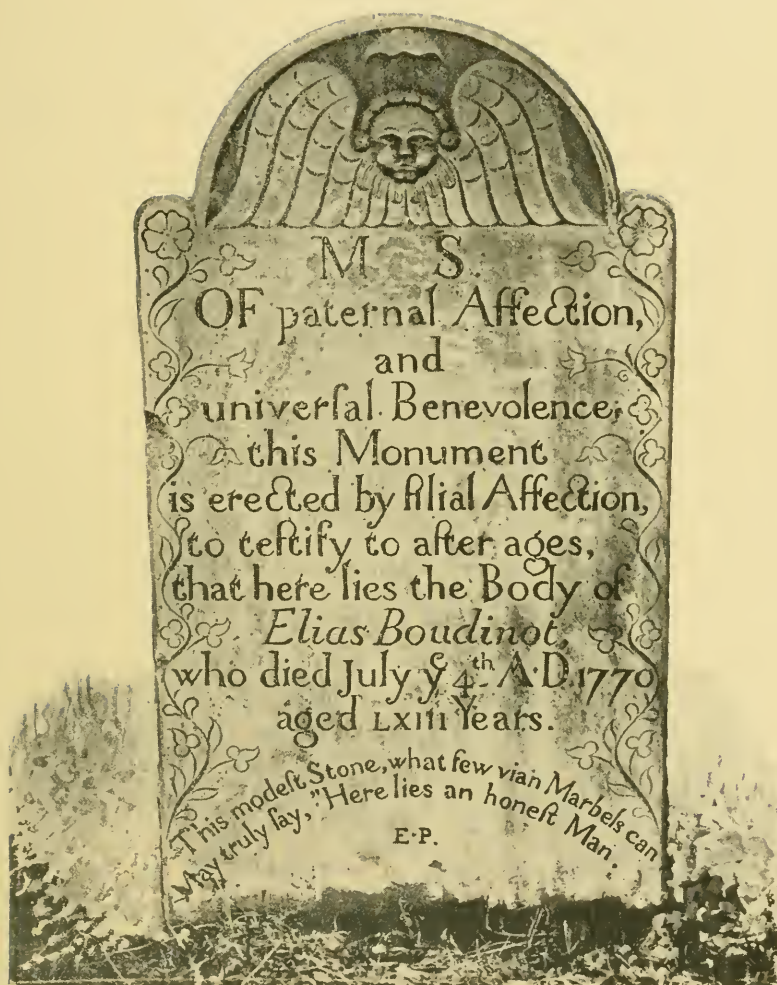 M S.
OF paternal Affection,
and
univerſal Benevolence;
this Monument
is erected by filial Affection,
to teſtify to after ages,
that here lies the Body of
Elias Boudinot,
who died July yᵉ 4ᵗʰ A·D. 1770
aged LXIII Years.
This modeſt Stone, what few vian Marbels can
May truly ſay, "Here lies an honeſt Man:
E·P.